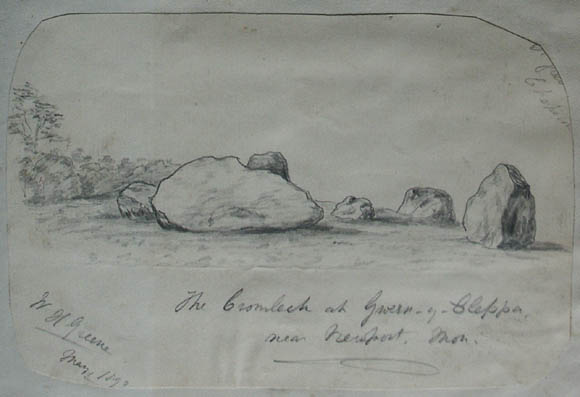 The Cromlech at Gwern-y-Cleppa,
near Newport. Mon:
W H Greene
May 1890